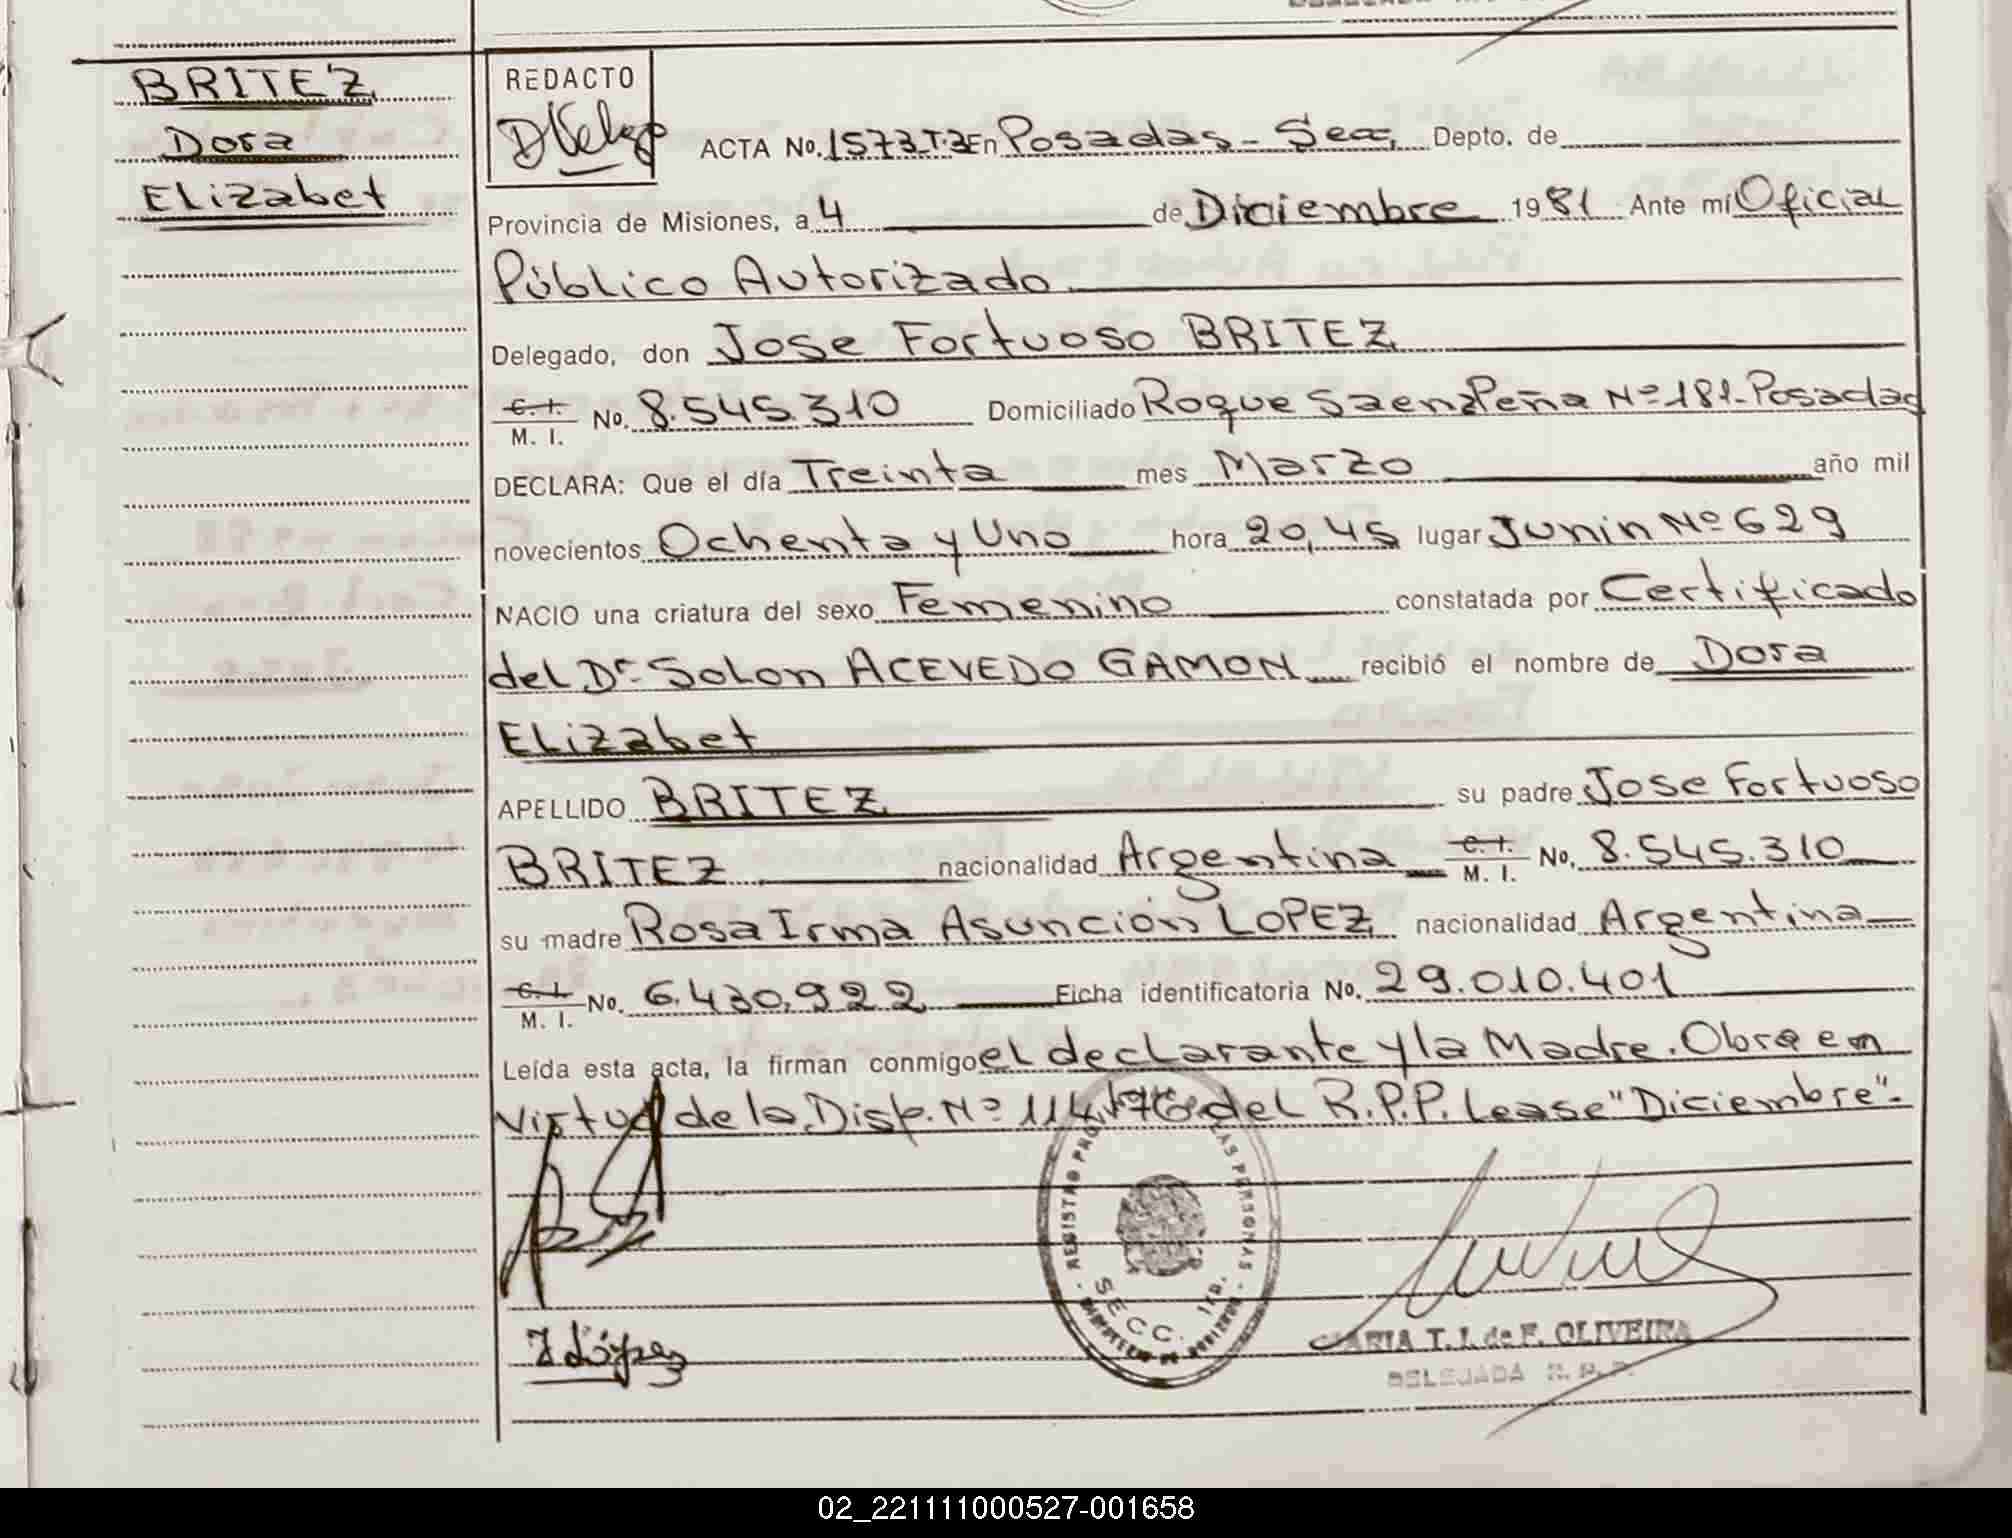 BRITEZ
Dora
Elizabet
REDACTO
ACTA No. 1573 T.3 En Posadas - Sec, Depto. de
Provincia de Misiones, a 4 de Diciembre 1981 Ante mí Oficial
Público Autorizado
Delegado, don Jose Fortuoso BRITEZ
C. I. M. I. No. 8.545.310 Domiciliado Roque Saenz Peña Nº 181 - Posadas
DECLARA: Que el día Treinta mes Marzo año mil
novecientos Ochenta y Uno hora 20,45 lugar Junin Nº 629
NACIO una criatura del sexo Femenino constatada por Certificado
del Dr. Solon ACEVEDO GAMON recibió el nombre de Dora
Elizabet
APELLIDO BRITEZ su padre Jose Fortuoso
BRITEZ nacionalidad Argentina C. I. M. I. No. 8.545.310
su madre Rosa Irma Asunción LOPEZ nacionalidad Argentina
C. I. M. I. No. 6.430.922 Ficha identificatoria No. 29.010.401
Leída esta acta, la firman conmigo el declarante y la Madre. Obra en
Virtud de la Disp. Nº 114/76 del R.P.P. Lease "Diciembre".
REGISTRO PROV LAS PERSONAS
SECC. 1RA.
I López
MARIA T. I. de F. OLIVEIRA
DELEGADA R. P. P.
02_221111000527-001658